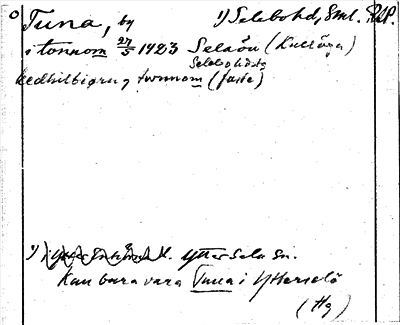 Tuna, by 1) Selebohd, Sml. RAP.
i tonnom 27/5 1423 Selaön (Kulsöga)
Selebohdsbg
kedhilbiørn j twnnom (faste)
1) Ytter Sela sn.
Kan bara vara Tuna i Ytterselö
(Hg)